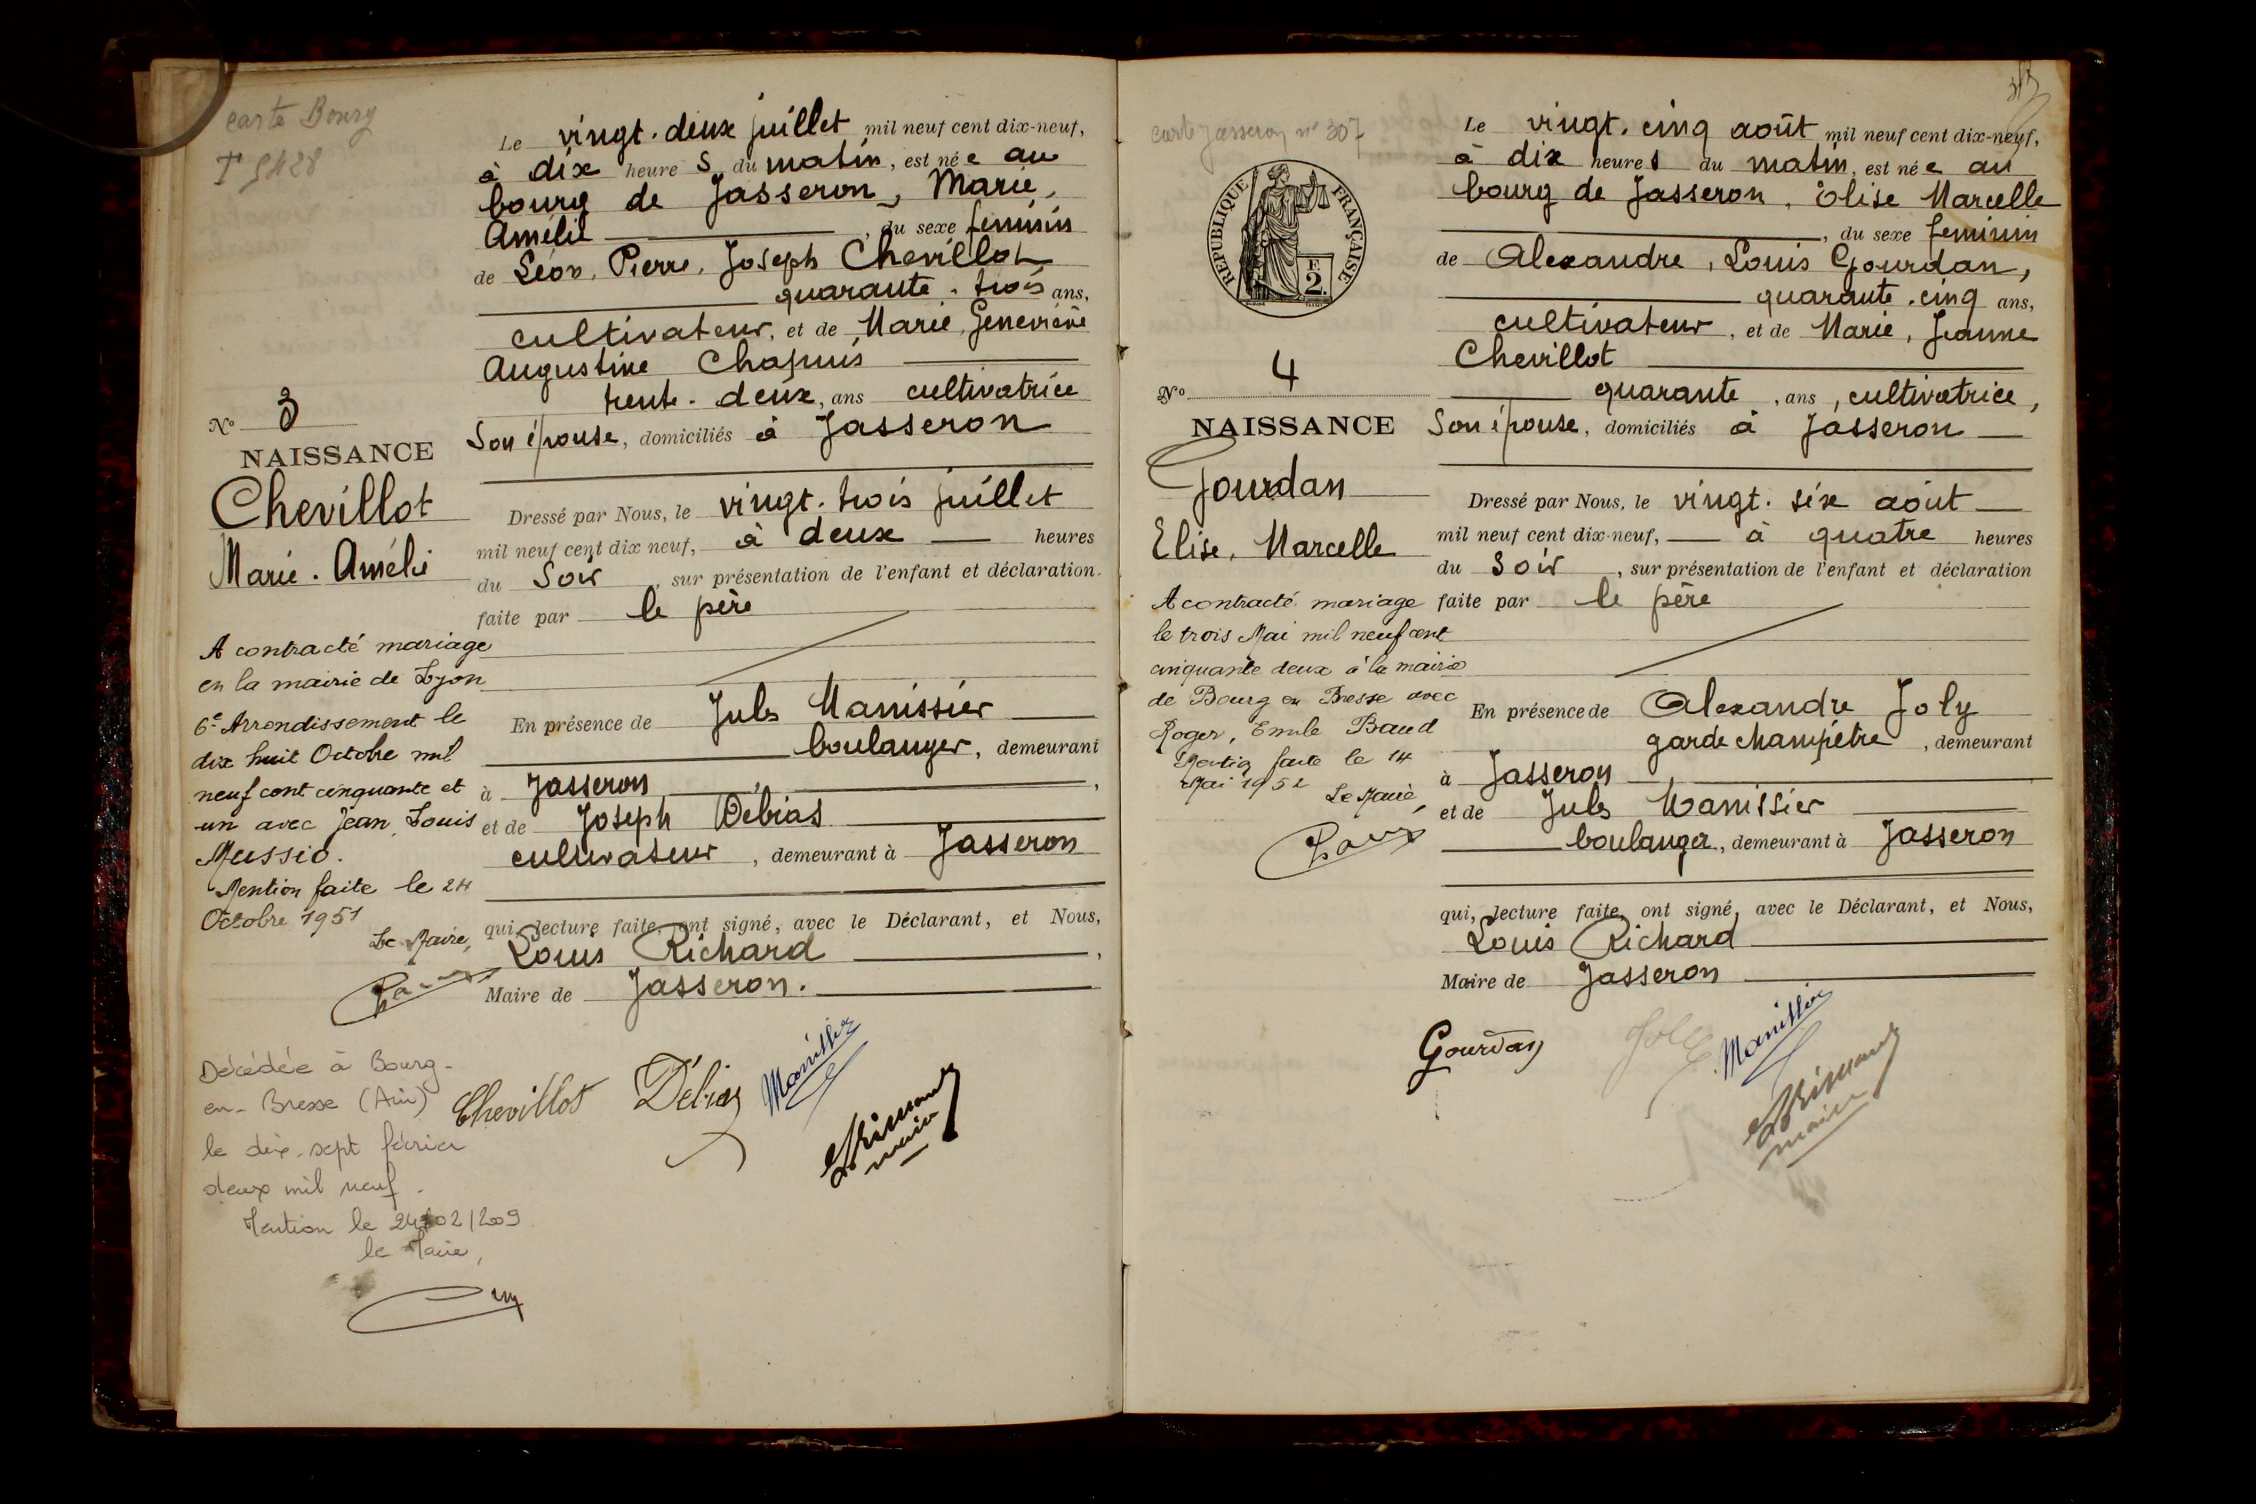 carte Bourg
T 9428
Le vingt-deux juillet mil neuf cent dix-neuf,
à dix heures du matin, est née au
bourg de Jasseron, Marie,
Amélie, du sexe feminin
de Léon, Pierre, Joseph Chevillot
quarante-trois ans,
cultivateur, et de Marie, Geneviève
Augustine Chapuis
trente-deux, ans cultivatrice
Son épouse, domiciliés à Jasseron
N° 3
NAISSANCE
Chevillot
Marie-Amélie
Dressé par Nous, le vingt-trois juillet
mil neuf cent dix neuf, à deux heures
du Soir, sur présentation de l'enfant et déclaration
faite par le père
A contracté mariage
en la mairie de Lyon
6e Arrondissement le
dix huit Octobre mil
neuf cent cinquante et
un avec Jean, Louis
Mussio.
Mention faite le 24
Octobre 1951
Le Maire,
En présence de Jules Manissier
boulanger, demeurant
à Jasseron,
et de Joseph Débias
cultivateur, demeurant à Jasseron
qui, lecture faite, ont signé, avec le Déclarant, et Nous,
Louis Richard,
Maire de Jasseron.
Décédée à Bourg-
en-Bresse (Ain)
le dix-sept février
deux mil neuf.
Mention le 24/02/2009
le Maire,
Chevillot Débias Manissier
maire
carte Jasseron n° 307
RÉPUBLIQUE FRANÇAISE
F
2
Le vingt-cinq août mil neuf cent dix-neuf,
à dix heures du matin, est née au
bourg de Jasseron, Elise Marcelle
, du sexe feminin
de Alexandre, Louis Gourdan,
quarante-cinq ans,
cultivateur, et de Marie, Jeanne
Chevillot
quarante, ans, cultivatrice,
Son épouse, domiciliés à Jasseron
N° 4
NAISSANCE
Gourdan
Elise, Marcelle
Dressé par Nous, le vingt-six août
mil neuf cent dix-neuf, à quatre heures
du Soir, sur présentation de l'enfant et déclaration
faite par le père
A contracté mariage
le trois Mai mil neuf cent
cinquante deux à la mairie
de Bourg en Bresse avec
Roger, Emile Baud
Mention faite le 14
Mai 1952
Le Maire,
En présence de Alexandre Joly
garde champêtre, demeurant
à Jasseron,
et de Jules Manissier
boulanger, demeurant à Jasseron
qui, lecture faite, ont signé, avec le Déclarant, et Nous,
Louis Richard
Maire de Jasseron
Gourdan Joly Manissier
maire